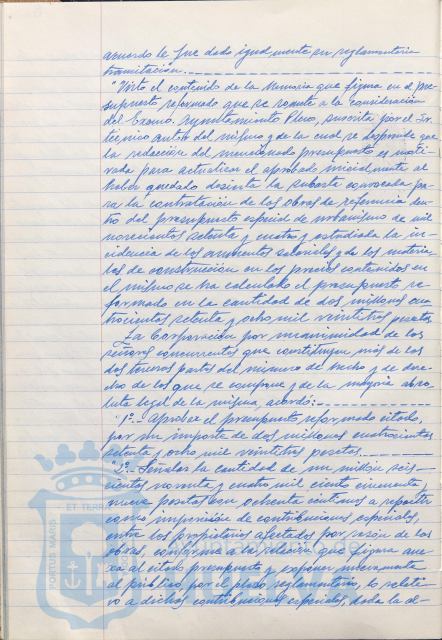 acuerdo le fue dada igualmente su reglamentaria
tramitación.
"Visto el contenido de la Memoria que figura en el pre-
supuesto reformado que se somete a la consideración
del Excmo. Ayuntamiento Pleno, suscrita por el Sr.
técnico autor del mismo y de la cual se desprende que
la redacción del mencionado presupuesto es moti-
vada para actualizar el aprobado inicialmente al
haber quedado desierta la subasta convocada pa-
ra la contratación de las obras de referencia den-
tro del presupuesto especial de urbanismo de mil
novecientos setenta y cuatro y estudiada la in-
cidencia de los aumentos salariales y de los materia-
les de construcción en los precios contenidos en
el mismo se ha calculado el presupuesto re-
formado en la cantidad de dos millones cua-
trocientas setenta y ocho mil veintitres pesetas.
La Corporación por unanimidad de los
señores concurrentes que constituyen más de los
dos terceras partes del número de hecho y de dere-
cho de los que se compone y de la mayoría abso-
luta legal de la misma, acordó:
1º.- Aprobar el presupuesto reformado citado,
por un importe de dos millones cuatrocientas
setenta y ocho mil veintitres pesetas.
"2º.- Señalar la cantidad de un millón seis-
cientas noventa y cuatro mil ciento cincuenta y
nueve pesetas con ochenta céntimos a repartir
como imposición de contribuciones especiales,
entre los propietarios afectados por razón de las
obras, conforme a la relación que figura ane-
xa al citado presupuesto y exponer nuevamente
al público, por el plazo reglamentario, lo relati-
vo a dichas contribuciones especiales, dada la al-
PORTUS MARIS ET TERRAE